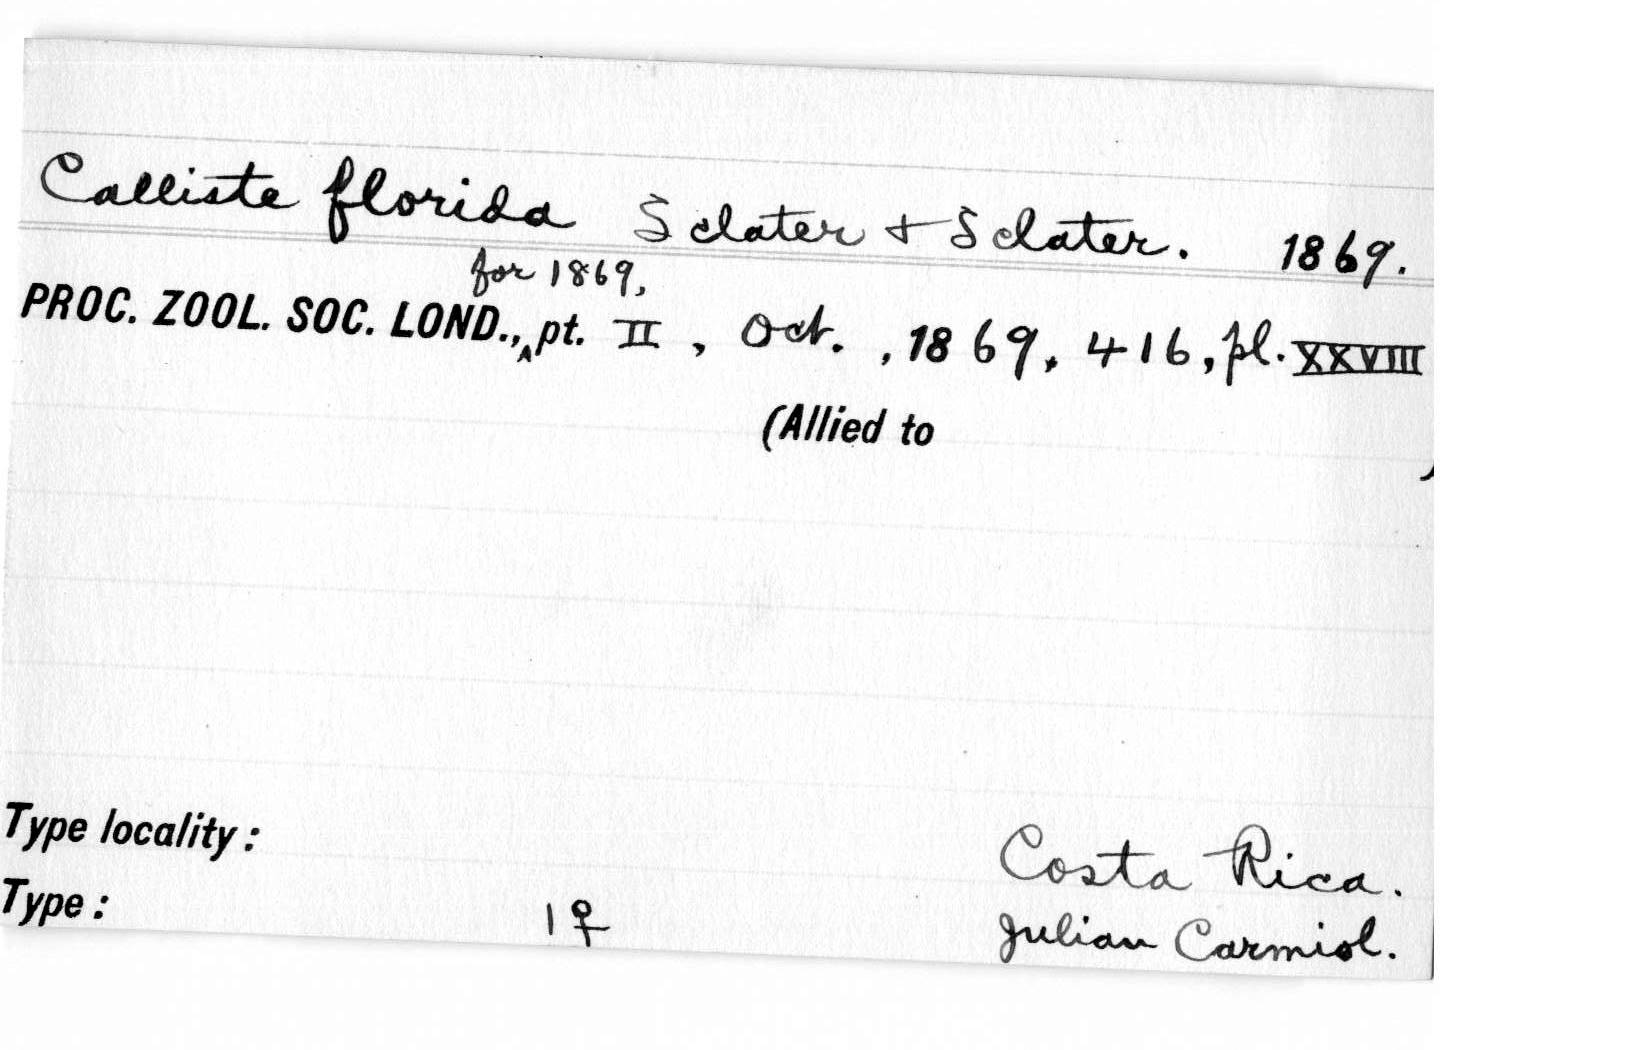 Calliste florida Sclater + Sclater. 1869.
for 1869,
PROC. ZOOL. SOC. LOND., ‸ pt. II, Oct., 1869, 416, pl. XXVIII
(Allied to )
Type locality: Costa Rica.
Type: 1♀ Julian Carmiol.